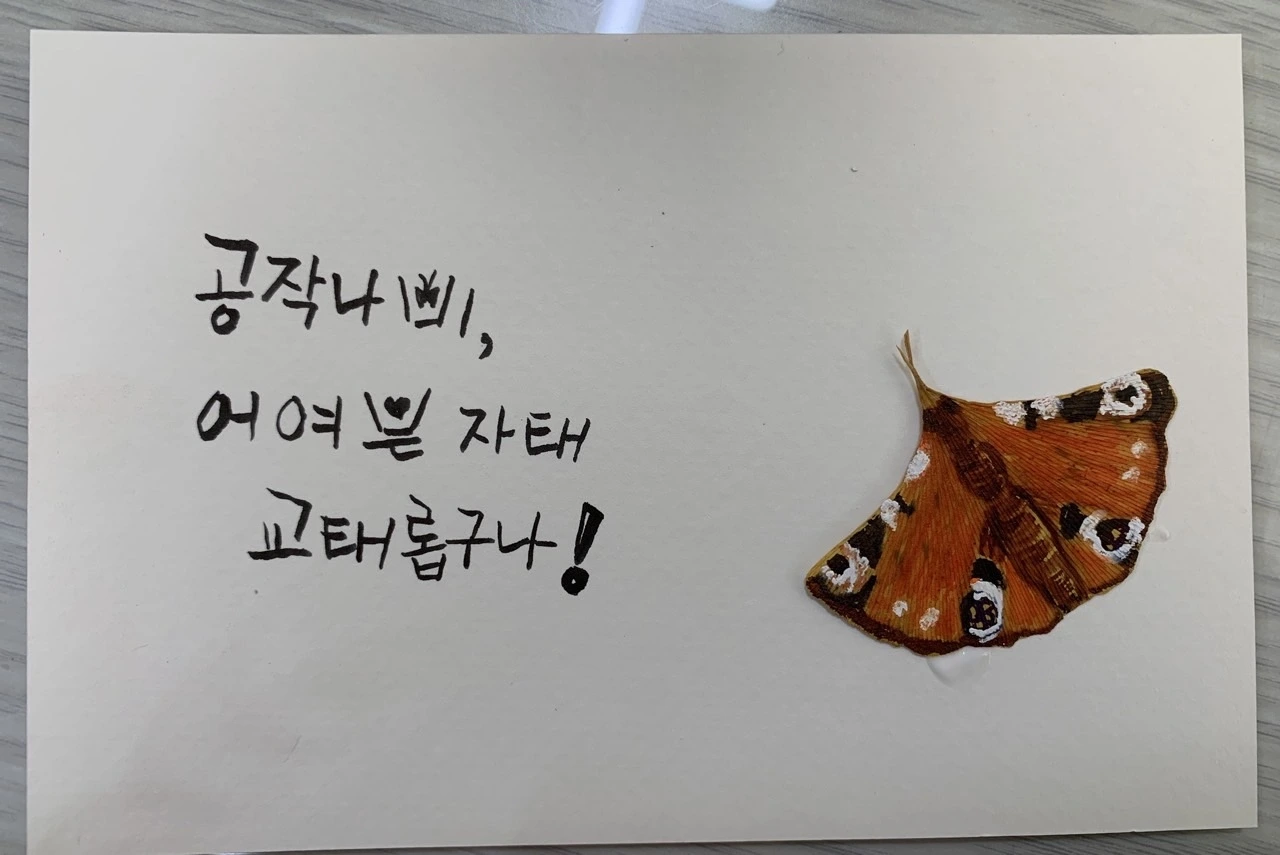 공작나삐,
어여쁜 자태
교태롭구나!